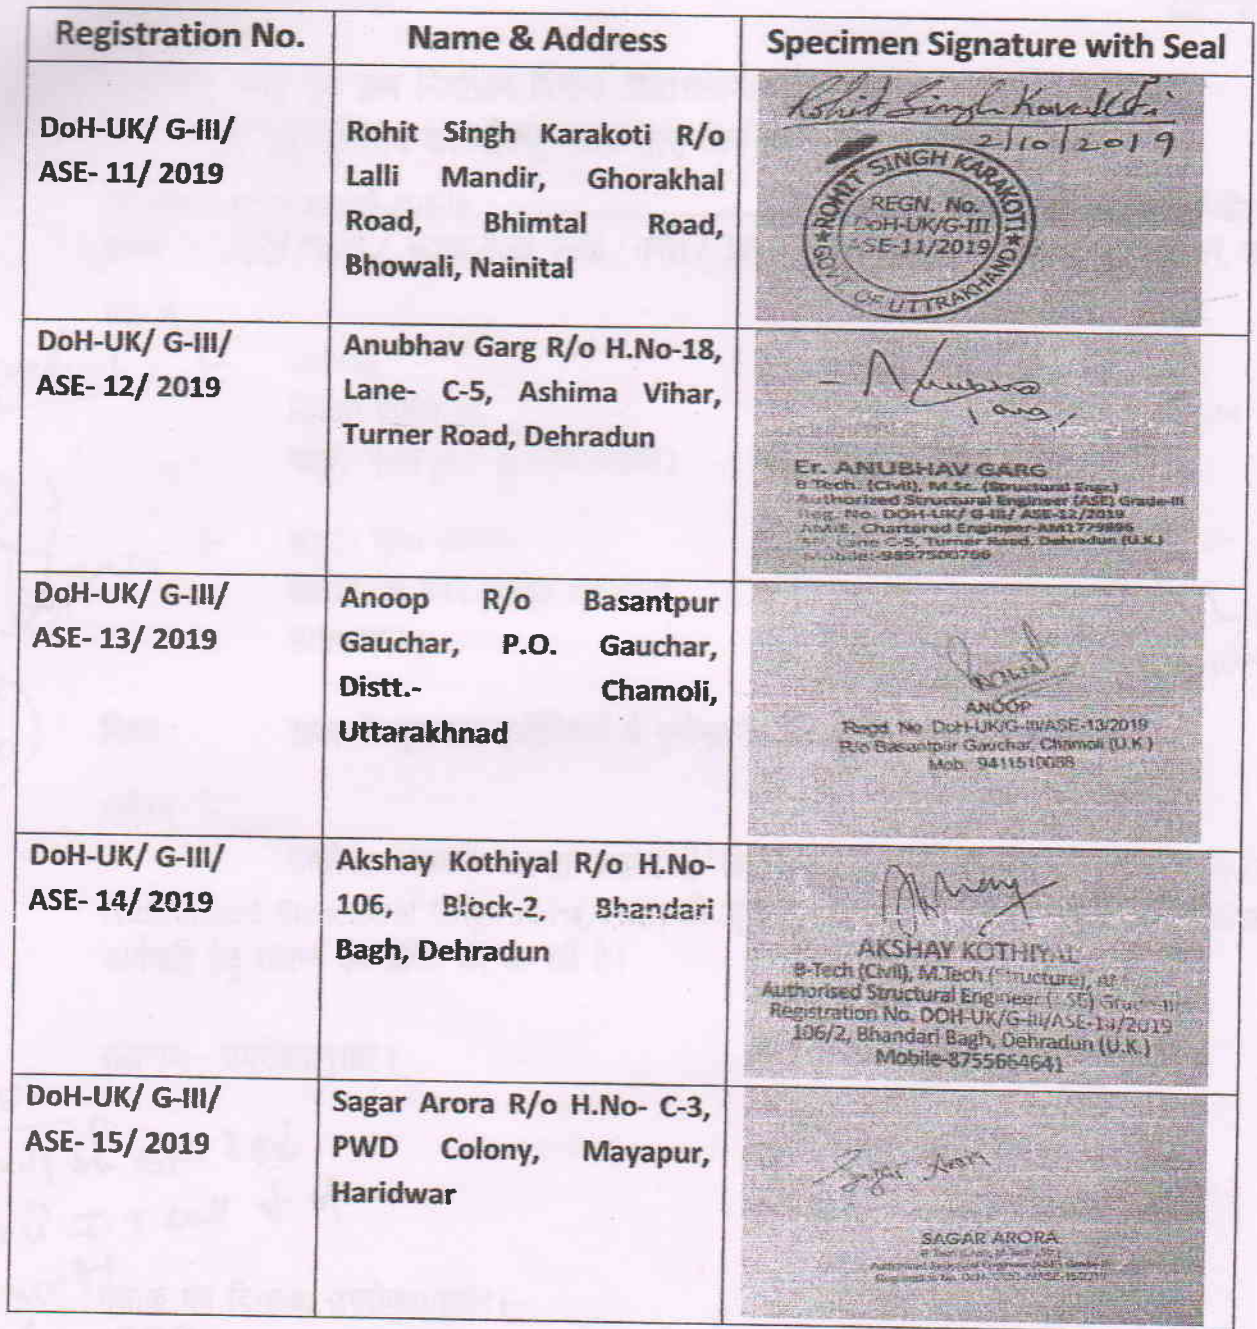 Registration No.
Name & Address
Specimen Signature with Seal
DoH-UK/ G-III/
ASE- 11/ 2019
Rohit Singh Karakoti R/o
Lalli Mandir, Ghorakhal
Road, Bhimtal Road,
Bhowali, Nainital
Rohit Singh Karakoti
2/10/2019
ROHIT SINGH KARAKOTI
REGN. No.
DoH-UK/G-III
ASE-11/2019
GOVT OF UTTRAKHAND
DoH-UK/ G-III/
ASE- 12/ 2019
Anubhav Garg R/o H.No-18,
Lane- C-5, Ashima Vihar,
Turner Road, Dehradun
Er. ANUBHAV GARG
B Tech. (Civil), M.Sc. (Structural Engr.)
Authorized Structural Engineer (ASE) Grade-III
Reg. No. DOH-UK/ G-III/ ASE-12/2019
AMIE, Chartered Engineer-AM1779896
Lane C-5, Turner Road, Dehradun (U.K.)
Mobile:-9897500766
DoH-UK/ G-III/
ASE- 13/ 2019
Anoop R/o Basantpur
Gauchar, P.O. Gauchar,
Distt.- Chamoli,
Uttarakhnad
ANOOP
Regd. No. DoH-UK/G-III/ASE-13/2019
R/o Basantpur Gauchar, Chamoli (U.K.)
Mob. 9411510088
DoH-UK/ G-III/
ASE- 14/ 2019
Akshay Kothiyal R/o H.No-
106, Block-2, Bhandari
Bagh, Dehradun
AKSHAY KOTHIYAL
B-Tech (Civil), M.Tech (Structure),
Authorised Structural Engineer (ASE) Grade-III
Registration No. DOH-UK/G-III/ASE-14/2019
106/2, Bhandari Bagh, Dehradun (U.K.)
Mobile-8755664641
DoH-UK/ G-III/
ASE- 15/ 2019
Sagar Arora R/o H.No- C-3,
PWD Colony, Mayapur,
Haridwar
Sagar Arora
SAGAR ARORA